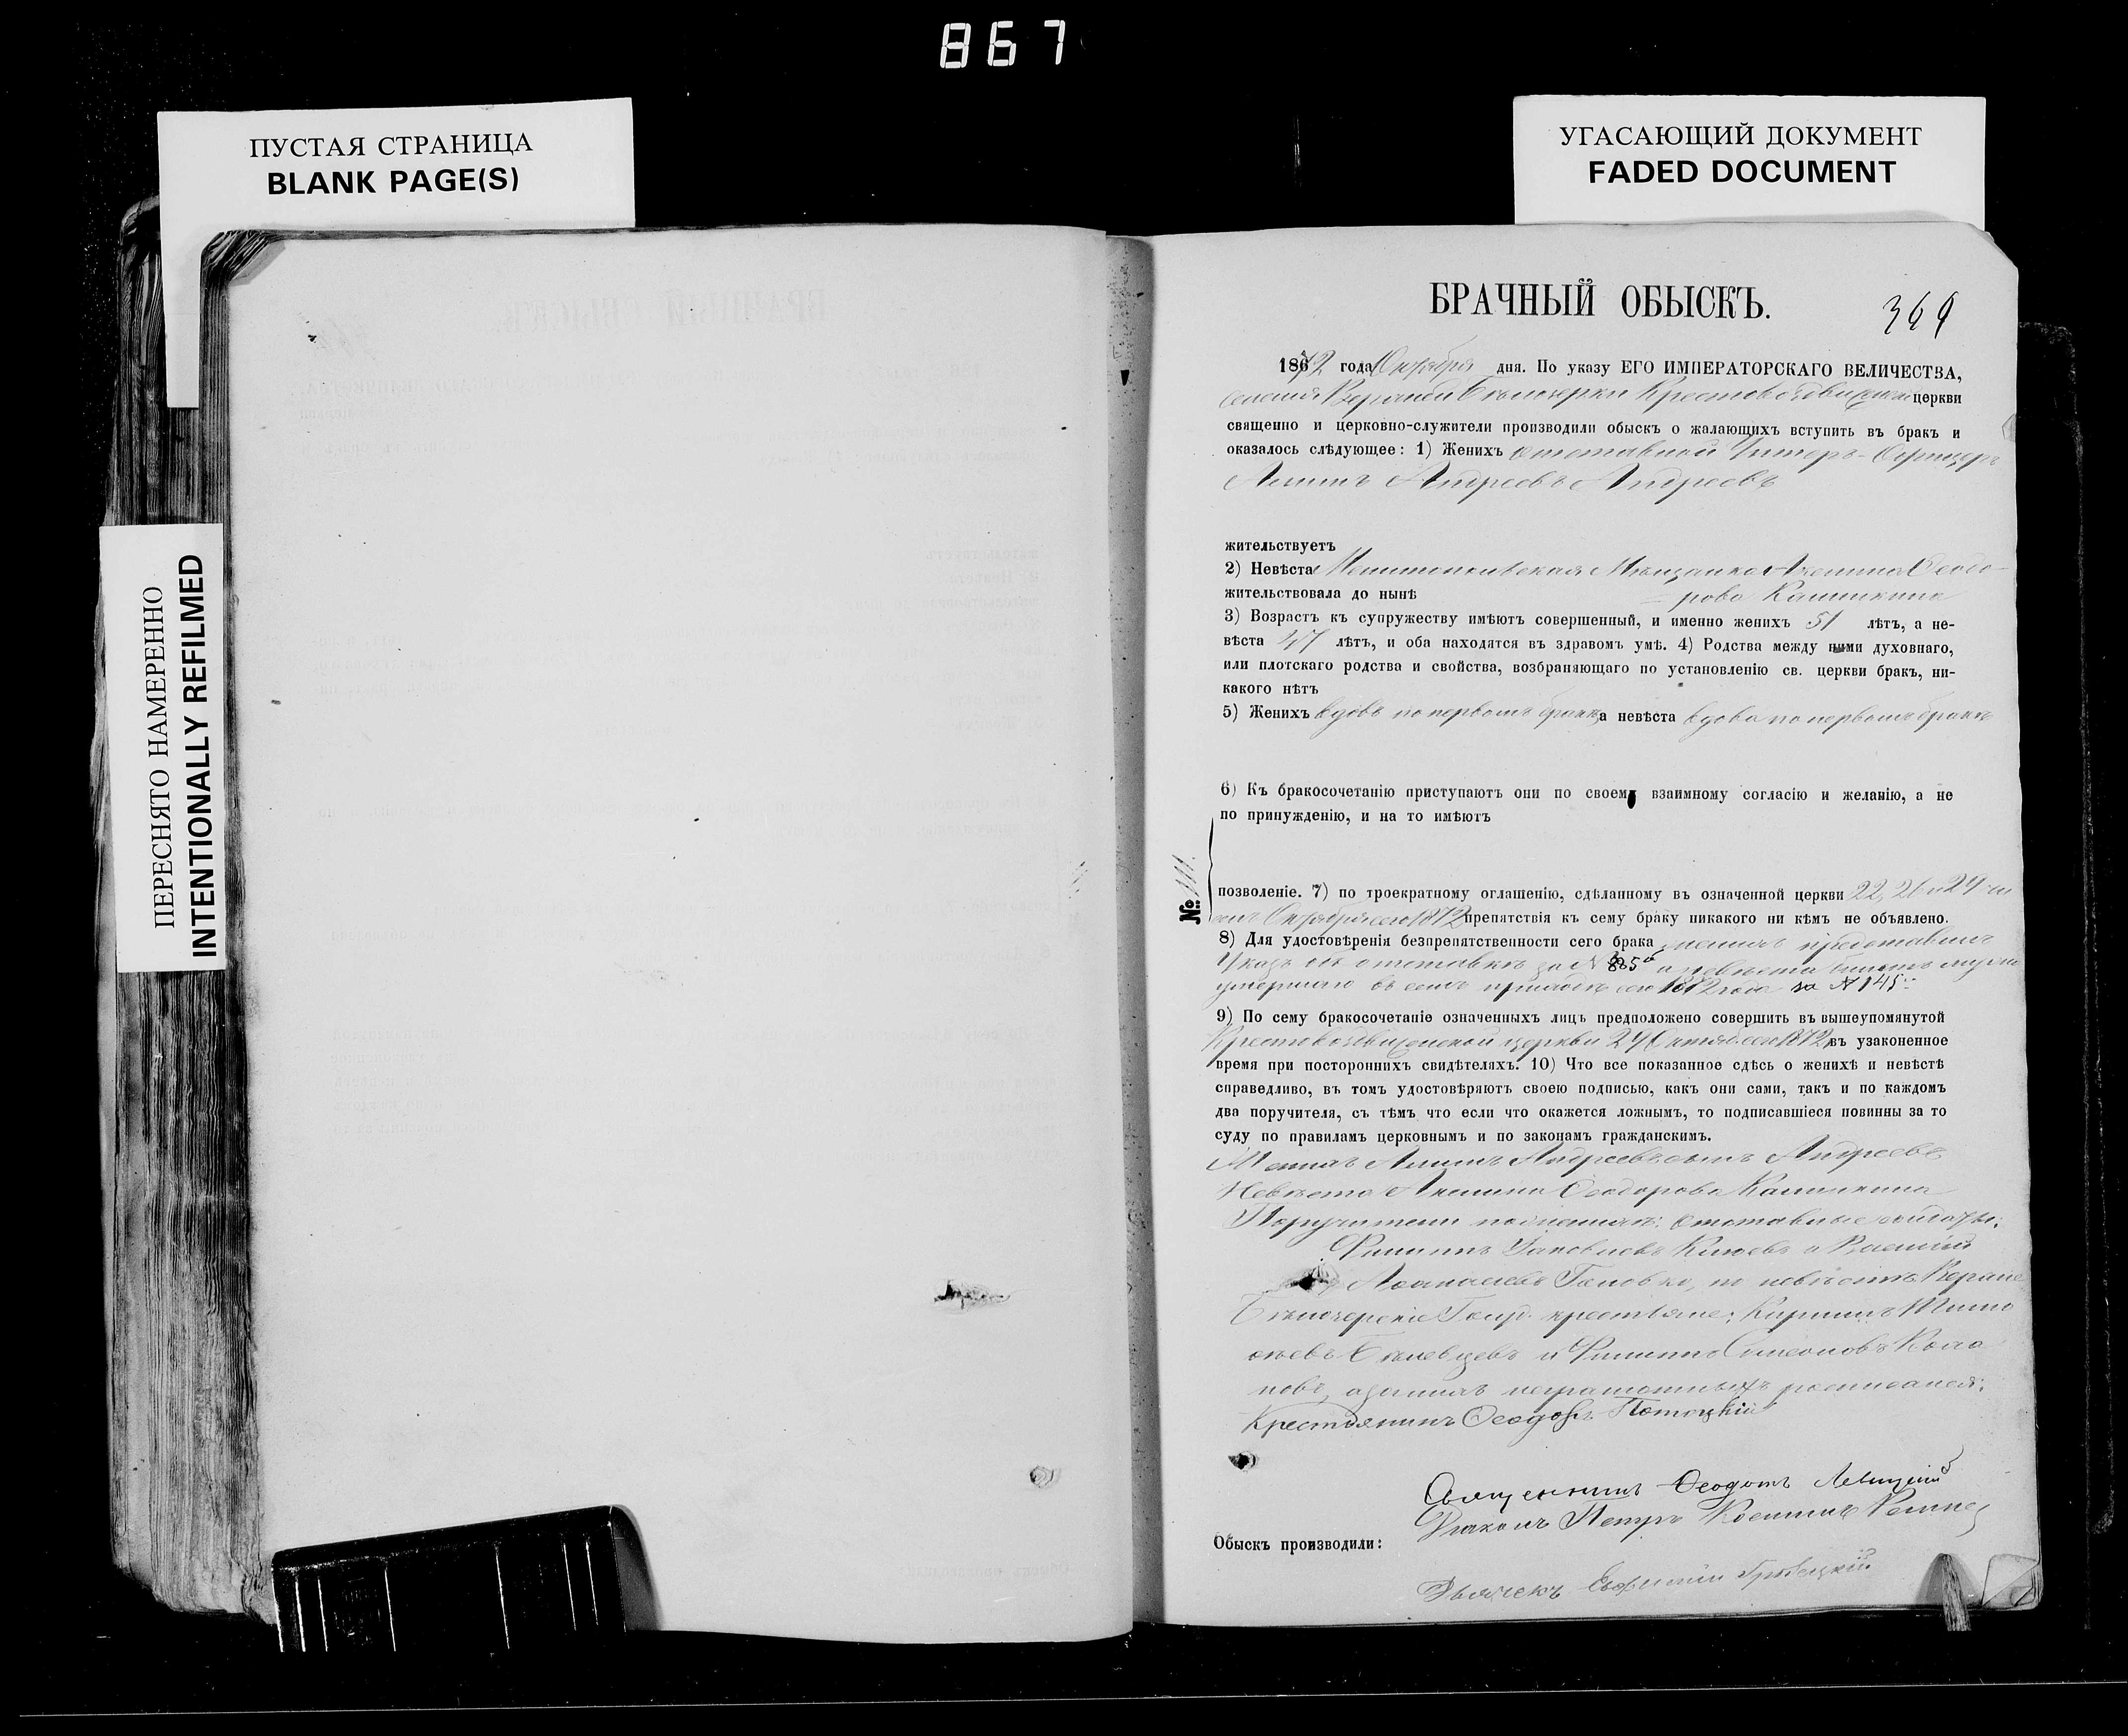 867
ПУСТАЯ СТРАНИЦА
BLANK PAGE(S)
УГАСАЮЩИЙ ДОКУМЕНТ
FADED DOCUMENT
ПЕРЕСНЯТО НАМЕРЕННО
INTENTIONALLY REFILMED
БРАЧНЫЙ ОБЫСКЪ.
369
1872 года Октября дня. По указу ЕГО ИМПЕРАТОРСКАГО ВЕЛИЧЕСТВА,
селенія Бѣлозерки Крестовоздвиженской церкви
священно и церковно-служители производили обыскъ о жалающихъ вступить въ бракъ и
оказалось слѣдующее: 1) Женихъ отставной Унтеръ-Офицеръ
Андреевъ Андреевъ
жительствуетъ
2) Невѣста Мѣщанка Акилина Ѳеодо-
жительствовала до нынѣ рова Калинкина
3) Возрастъ къ супружеству имѣютъ совершенный, и именно женихъ 51 лѣтъ, а не-
вѣста 47 лѣтъ, и оба находятся въ здравомъ умѣ. 4) Родства между ними духовнаго,
или плотскаго родства и свойства, возбраняющаго по установленію св. церкви бракъ, ни-
какого нѣтъ
5) Женихъ вдовъ по первомъ бракѣ а невѣста вдова по первомъ бракѣ
6) Къ бракосочетанію приступаютъ они по своему взаимному согласію и желанію, а не
по принужденію, и на то имѣютъ
№ 111.
позволеніе. 7) по троекратному оглашенію, сдѣланному въ означенной церкви 22, 26 и 29
Октября сего 1872 препятствія къ сему браку никакого ни кѣмъ не объявлено.
8) Для удостовѣренія безпрепятственности сего брака женихъ представилъ
Указъ объ отставкѣ за № а невѣста
умершаго въ семъ приходѣ сего 1872 года за № 145.
9) По сему бракосочетаніе означенныхъ лицъ предположено совершить въ вышеупомянутой
Крестовоздвиженской церкви 29 Октября сего 1872 въ узаконенное
время при постороннихъ свидѣтеляхъ. 10) Что все показанное сдѣсь о женихѣ и невѣстѣ
справедливо, въ томъ удостовѣряютъ своею подписью, какъ они сами, такъ и по каждомъ
два поручителя, съ тѣмъ что если что окажется ложнымъ, то подписавшіеся повинны за то
суду по правиламъ церковнымъ и по законамъ гражданскимъ.
Женихъ Андреевъ сынъ Андреевъ
Невѣста Акилина Ѳеодорова Калинкина
Поручители по женихѣ: отставные солдаты:
Филиппъ Яковлевъ и Василій
Аѳанасіевъ Головко, по невѣстѣ
Бѣлозерскіе Госуд. крестьяне:
и Филиппъ Симеоновъ
а за нихъ неграмотныхъ росписался:
Крестьянинъ Ѳеодоръ Потоцкій
Священникъ Ѳеодотъ Левицкій
Диаконъ Петръ
Обыскъ производили:
Дьячекъ Евфимій